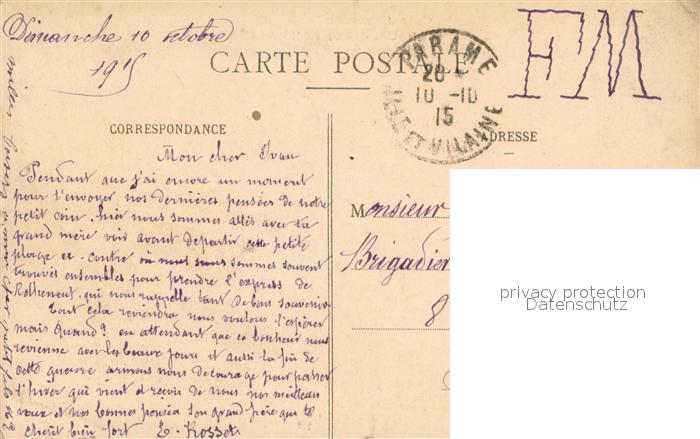 Dimanche 10 octobre
1915
FM
CARTE POSTALE
PARAME
20
10 -10
15
ILLE-ET-VILAINE
CORRESPONDANCE
ADRESSE
Mon cher Ivan
Pendant que j'ai encore un moment
pour t'envoyer nos dernières pensées de notre
petit coin. hier nous sommes allés avec ta
grand mère voir avant de partir cette petite
plage et contre où nous nous sommes souvent
trouvés ensembles pour prendre l'express de
Rotheneuf. qui nous rappelle tant de bons souvenirs
tout cela reviendra nous voulons l'espérer
mais quand? en attendant que ce bonheur nous
revienne avec les beaux jours et aussi la fin de
cette guerre armons nous de courage pour passer
l'hiver qui vient et reçois de nous nos meilleurs
vœux et nos bonnes pensées ton grand père qui te
chérit bien fort E. Rosset
Monsieur
Brigadier
8
privacy protection
Datenschutz